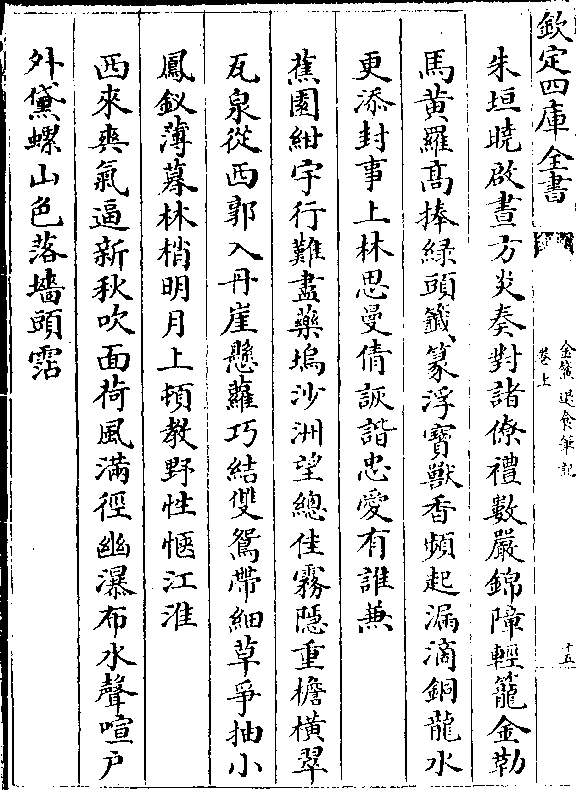 欽定四庫全書
金鰲退食筆記
卷上
十五
朱垣曉啟晝方炎奏對諸僚禮數嚴錦障輕籠金勒
馬黄羅髙捧緑頭籤篆浮寳獸香頻起漏滴銅龍水
更添封事上林思曼倩詼諧忠愛有誰兼
蕉園紺宇行難盡藥塢沙洲望總佳霧隱重檐橫翠
瓦泉從西郭入丹崖懸蘿巧結雙鴛帶細草爭抽小
鳳釵薄暮林梢明月上頓教野性愜江淮
西來爽氣逼新秋吹面荷風滿徑幽瀑布水聲喧户
外黛螺山色落墻頭霑